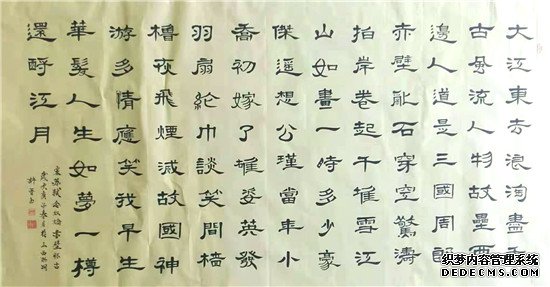 大江東去浪淘盡千
古風流人物故壘西
邊人道是三國周郎
赤壁亂石穿空驚濤
拍岸卷起千堆雪江
山如畫一時多少豪
傑遥想公瑾當年小
喬初嫁了雄姿英發
羽扇綸巾談笑間檣
櫓夜飛煙滅故國神
游多情應笑我早生
華髮人生如夢一樽
還酹江月
宋蘇軾念奴嬌赤壁懷古
织梦内容管理系统
DEDECMS.COM